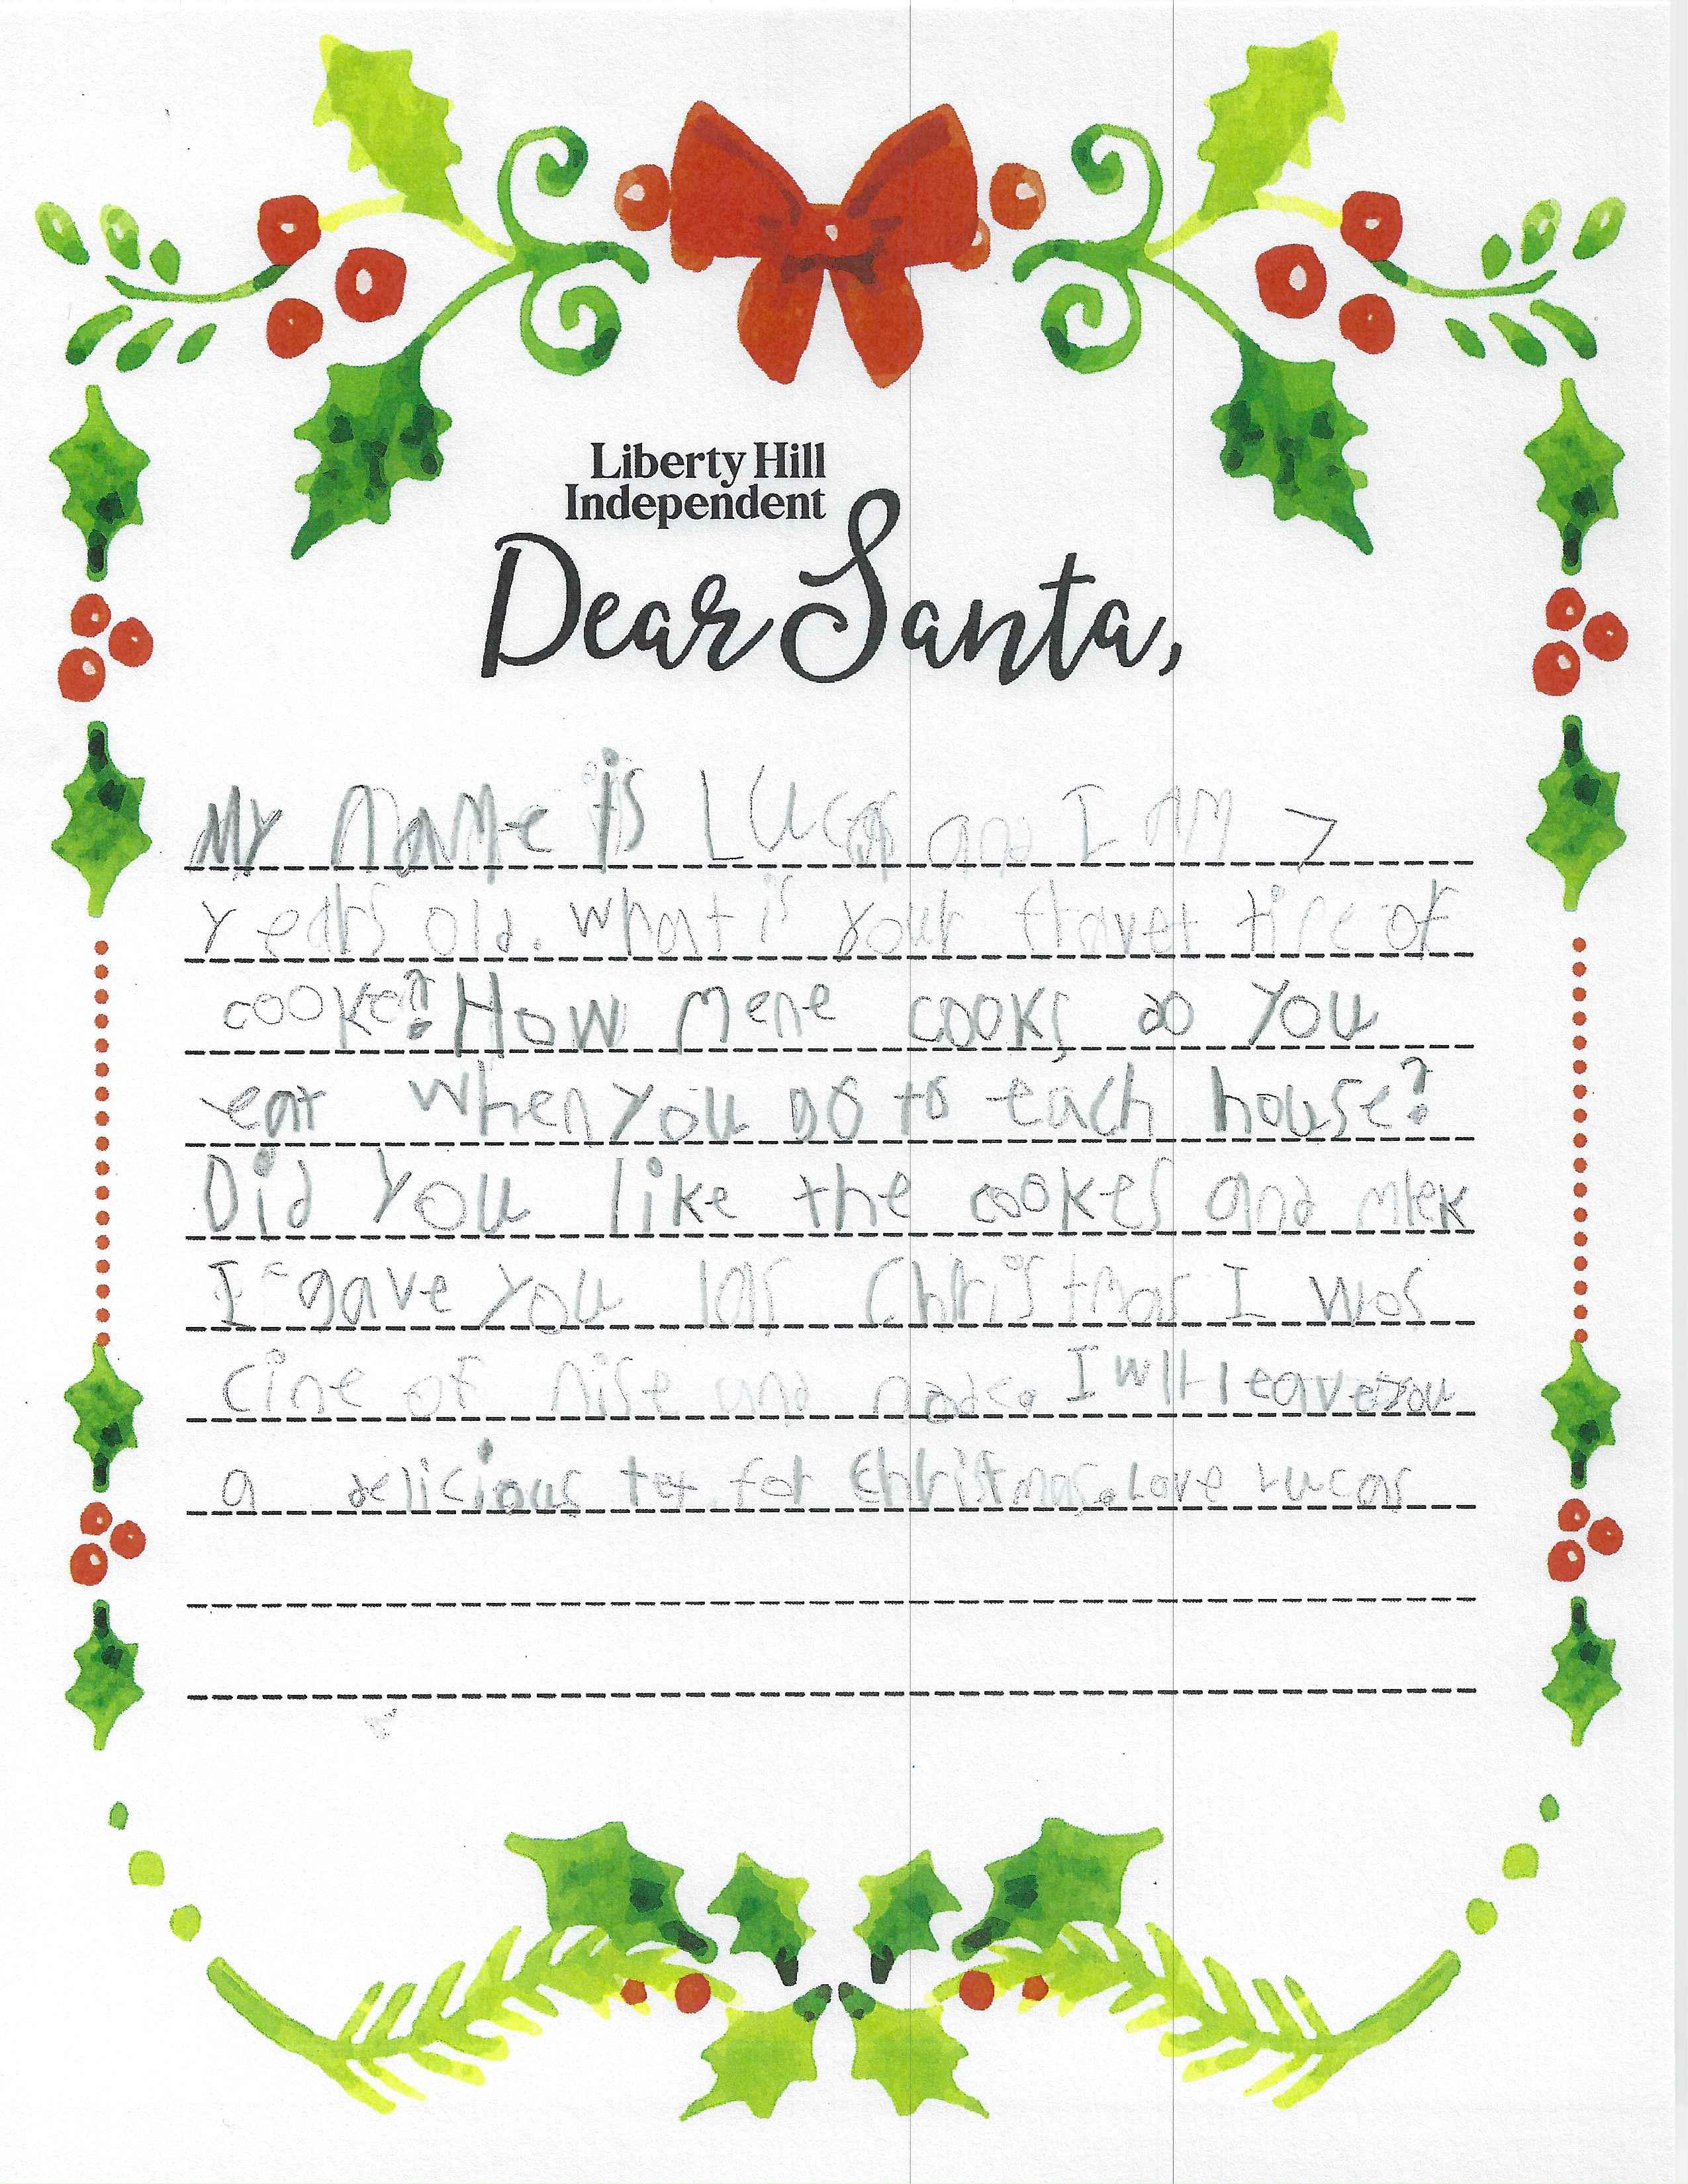 Liberty Hill
Independent
Dear Santa,
My name is Lucas and I am 7
years old. what is your flavet tire of
cooke? How mene cooks do you
eat when you go to each house?
Did you like the cookes and mlek
I gave you las Christmas I was
cine of nise and
I will leave you
a delicious for Christmas. Love Lucas